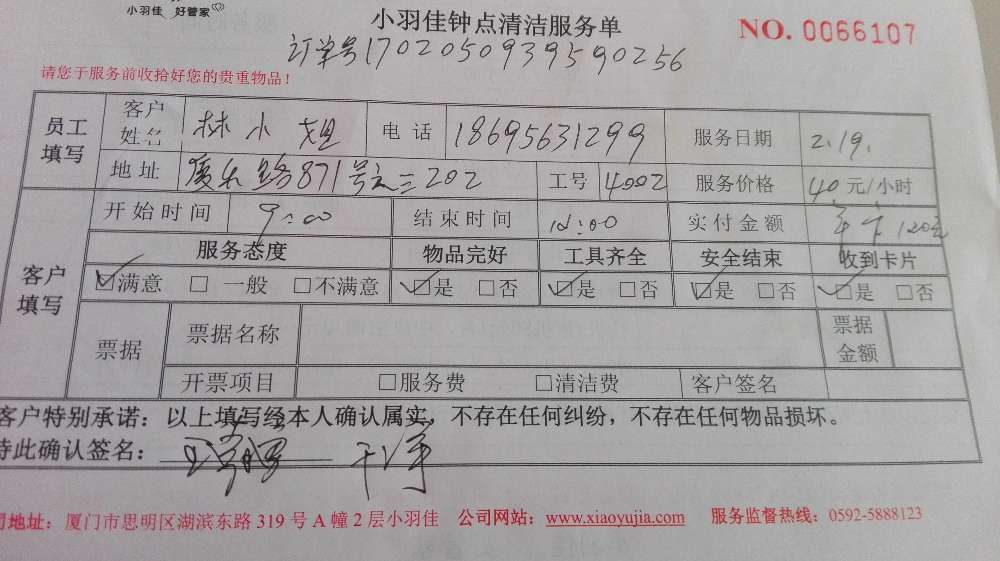 小羽佳 好管家
小羽佳钟点清洁服务单
NO. 0066107
订单号1702050939590256
请您于服务前收拾好您的贵重物品！
员工填写 客户姓名 林小姐 电话 18695631299 服务日期 2.19.
地址 厦禾路871号之三202 工号 4002 服务价格 40元/小时
客户填写 开始时间 9:00 结束时间 12:00 实付金额 120元
服务态度 物品完好 工具齐全 安全结束 收到卡片
☑满意 □一般 □不满意 ☑是 □否 ☑是 □否 ☑是 □否 ☑是 □否
票据 票据名称 票据金额
开票项目 □服务费 □清洁费 客户签名
客户特别承诺：以上填写经本人确认属实，不存在任何纠纷，不存在任何物品损坏。
特此确认签名：
司地址：厦门市思明区湖滨东路 319 号 A 幢 2 层小羽佳 公司网站：www.xiaoyujia.com 服务监督热线：0592-5888123